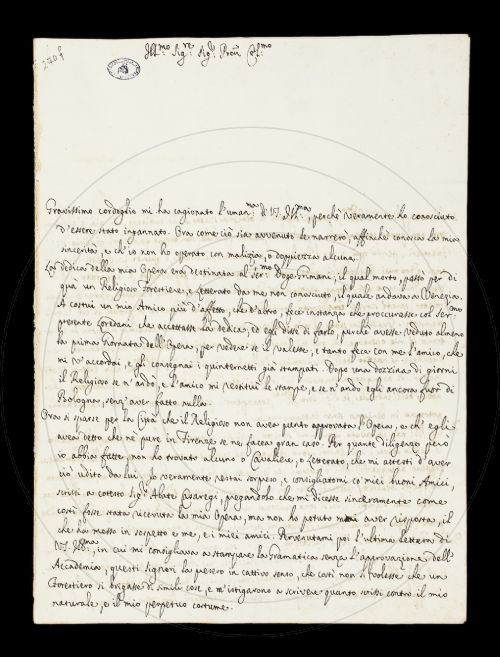 2709
Ill.mo Sig.re Sig.r Pron. Col.mo
Gravissimo cordoglio mi ha cagionato l'uman.ma di V.S. Ill.ma, perchè veramente ho conosciuto
d'essere stato ingannato. Ora come ciò sia avvenuto le narrerò, affinchè conosca la mia
sincerità, e ch'io non ho operato con malizia, o doppiezza alcuna.
La dedica della mia Opera era destinata al Ser.mo Doge Grimani, il qual morto, passò per di
quà un Religioso Forestiere, e Letterato da me non conosciuto, il quale andava a Venezia.
A costui un mio Amico, più d'affetto, che d'altro, fece instanza che procurasse col Ser.mo
presente Loredani che accettasse la dedica, ed egli disse di farlo, purchè avesse veduto almeno
la prima Giornata dell'Opera, per vedere se il valesse, e tanto fece con me l'amico, che
mi v'accordai, e gli consegnai i quinternetti già stampati. Dopo una dozzina di giorni
il Religioso se n'andò, e l'amico mi restituì le stampe, e se n'andò egli ancora fuor di
Bologna, senz'aver fatto nulla.
Ora si sparse per la Città che il Religioso non avea punto approvata l'Opera, e ch'egli
avea detto che nè pure in Firenze se ne facea gran caso. Per quante diligenze però
io abbia fatte, non ho trovato alcuno o Cavaliere, o Letterato, che mi attesti d'aver
ciò udito da lui. Io veramente restai sorpreso, e consigliatomi co' miei buoni Amici,
scrissi a cotesto Sig.r Abate Casaregi, pregandolo che mi dicesse sinceramente come
costì fosse stata ricevuta la mia Opera, ma non ho potuto mai aver risposta, il
che ha messo in sospetto e me, e i miei amici. Pervenutami poi l'ultima lettera di
V.S. Ill.ma, in cui mi consigliava a stampare la Gramatica senza l'approvazione dell'
Accademia, questi Signori la pesero in cattivo senso, che costì non si volesse che un
Forestiero si brigasse di simili cose, e m'istigarono a scrivere quanto scrissi contro il mio
naturale, e il mio perpetuo costume.